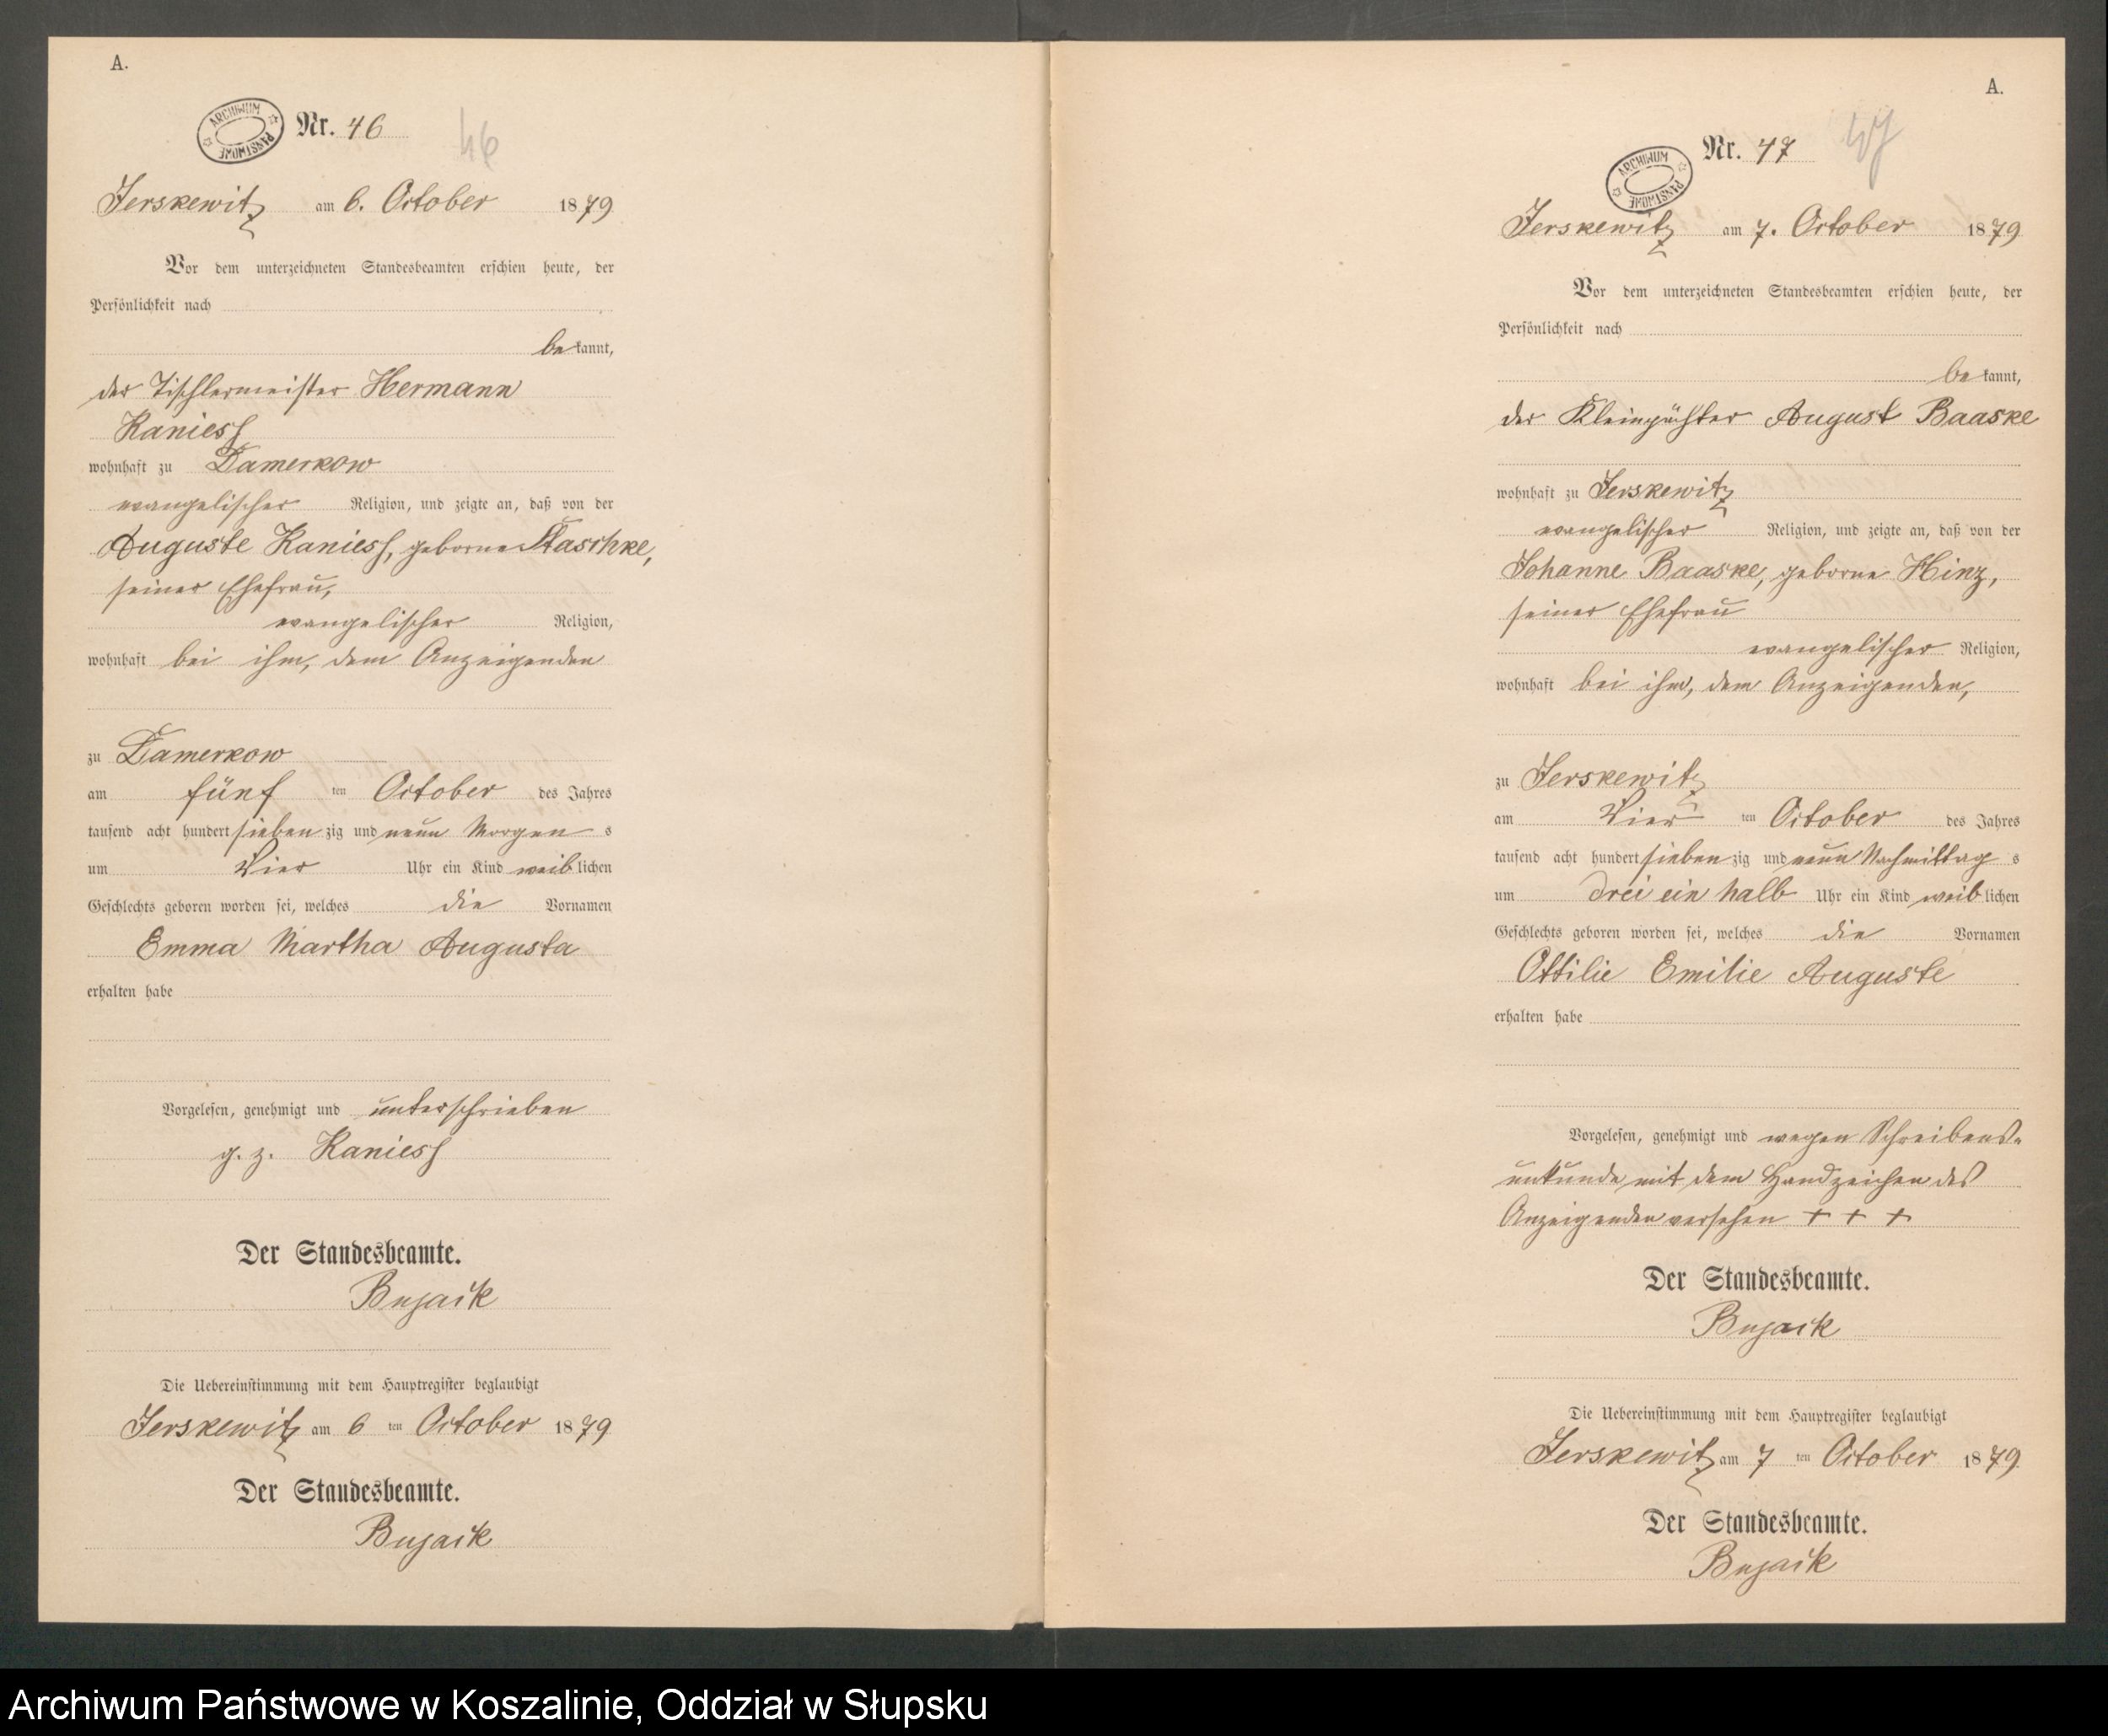 A.
ARCHIWUM PAŃSTWOWE
Nr. 46
46
Jerskewitz am 6. October 1879
Vor dem unterzeichneten Standesbeamten erschien heute, der
Persönlichkeit nach
bekannt,
der Tischlermeister Hermann
Kaniess
wohnhaft zu Damerkow
evangelischer Religion, und zeigte an, daß von der
Auguste Kaniess, geborne Staschke,
seiner Ehefrau,
evangelischer Religion,
wohnhaft bei ihm, dem Anzeigenden
zu Damerkow
am fünf ten October des Jahres
tausend acht hundert siebenzig und neun Morgens
um Vier Uhr ein Kind weiblichen
Geschlechts geboren worden sei, welches die Vornamen
Emma Martha Augusta
erhalten habe
Vorgelesen, genehmigt und unterschrieben
g. z. Kaniess
Der Standesbeamte.
Bujack
Die Uebereinstimmung mit dem Hauptregister beglaubigt
Jerskewitz am 6 ten October 1879
Der Standesbeamte.
Bujack
A.
Nr. 47
47
ARCHIWUM PAŃSTWOWE
Jerskewitz am 7. October 1879
Vor dem unterzeichneten Standesbeamten erschien heute, der
Persönlichkeit nach
bekannt,
der Kleinpächter August Baaske
wohnhaft zu Jerskewitz
evangelischer Religion, und zeigte an, daß von der
Johanne Baaske, geborne Hinz,
seiner Ehefrau
evangelischer Religion,
wohnhaft bei ihm, dem Anzeigenden,
zu Jerskewitz
am Vier ten October des Jahres
tausend acht hundert siebenzig und neun Nachmittags
um drei ein halb Uhr ein Kind weiblichen
Geschlechts geboren worden sei, welches die Vornamen
Ottilie Emilie Auguste
erhalten habe
Vorgelesen, genehmigt und wegen Schreibens-
unkunde mit dem Handzeichen des
Anzeigenden versehen + + +
Der Standesbeamte.
Bujack
Die Uebereinstimmung mit dem Hauptregister beglaubigt
Jerskewitz am 7 ten October 1879
Der Standesbeamte.
Bujack
Archiwum Państwowe w Koszalinie, Oddział w Słupsku